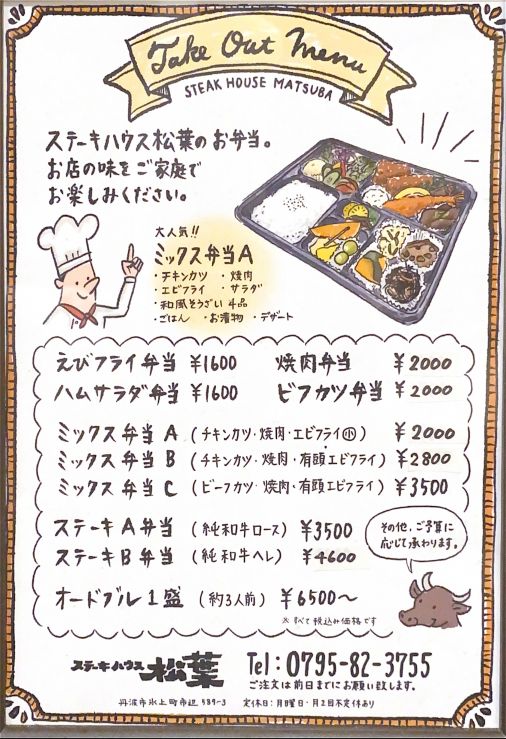 Take Out Menu
STEAK HOUSE MATSUBA
ステーキハウス松葉のお弁当。
お店の味をご家庭で
お楽しみください。
大人気!!
ミックス弁当A
・チキンカツ ・焼肉
・エビフライ ・サラダ
・和風そうざい4品
・ごはん ・お漬物 ・デザート
えびフライ弁当 ¥1600 焼肉弁当 ¥2000
ハムサラダ弁当 ¥1600 ビフカツ弁当 ¥2000
ミックス弁当A (チキンカツ・焼肉・エビフライ㊥) ¥2000
ミックス弁当B (チキンカツ・焼肉・有頭エビフライ) ¥2800
ミックス弁当C (ビーフカツ・焼肉・有頭エビフライ) ¥3500
ステーキA弁当 (純和牛ロース) ¥3500
ステーキB弁当 (純和牛ヘレ) ¥4600
その他、ご予算に
応じて承ります。
オードブル1盛 (約3人前) ¥6500〜
※すべて税込み価格です
ステーキハウス 松葉 Tel:0795-82-3755
ご注文は前日までにお願い致します。
丹波市氷上町市辺989-3 定休日:月曜日・月2回不定休あり